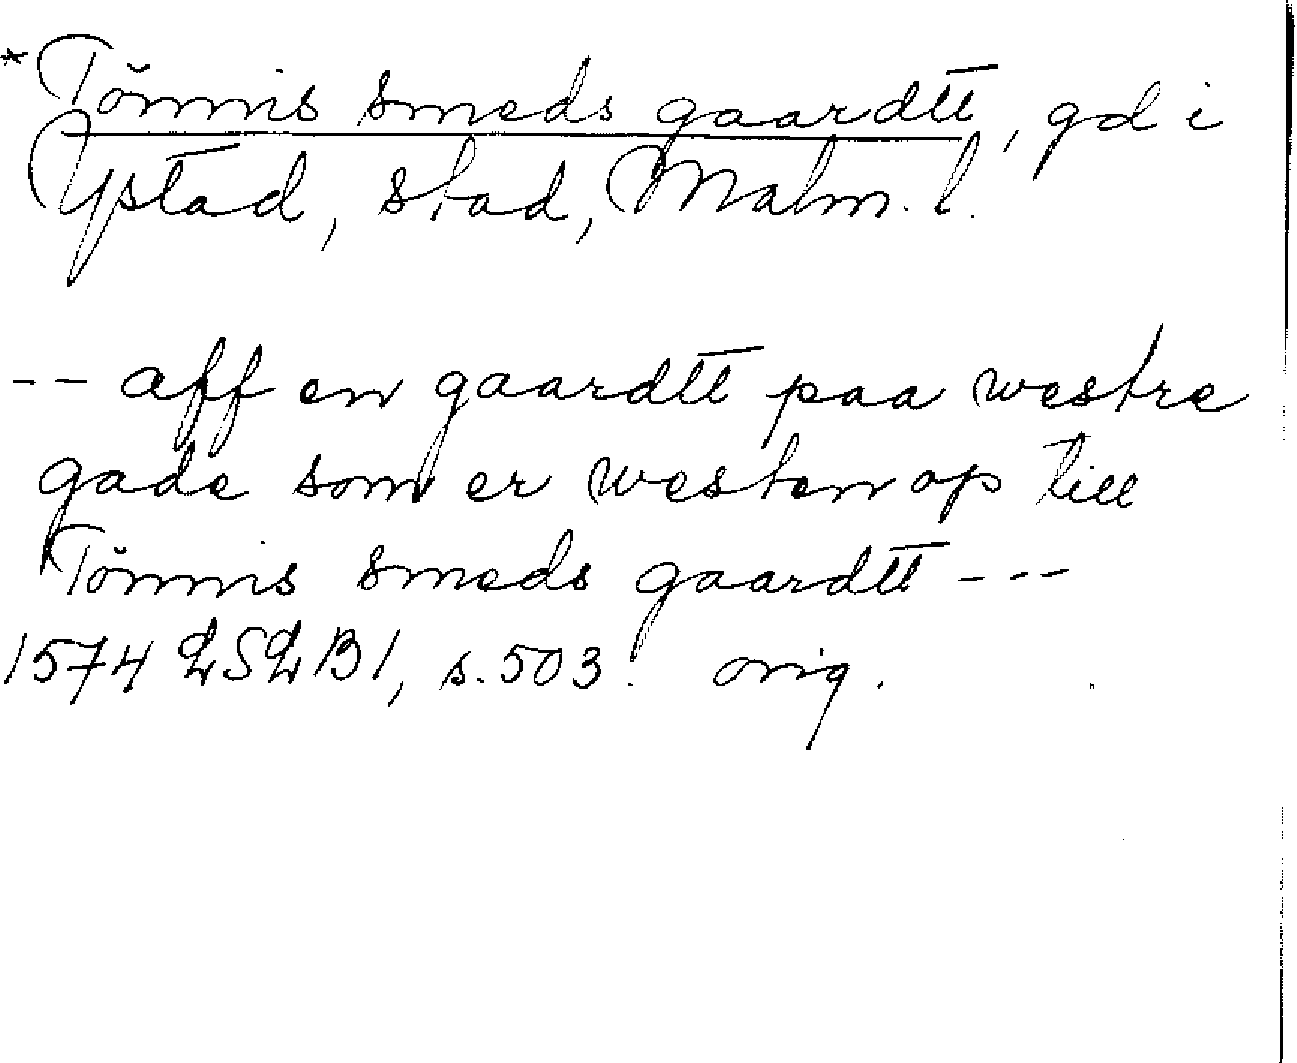 *Tŏnnis smeds gaardtt, gd i
Ystad, stad, Malm. l.
-- aff en gaardtt paa westre
gade som er westen op till
Tŏnnis smeds gaardtt ---
1574 LSLB1, s. 503. orig.